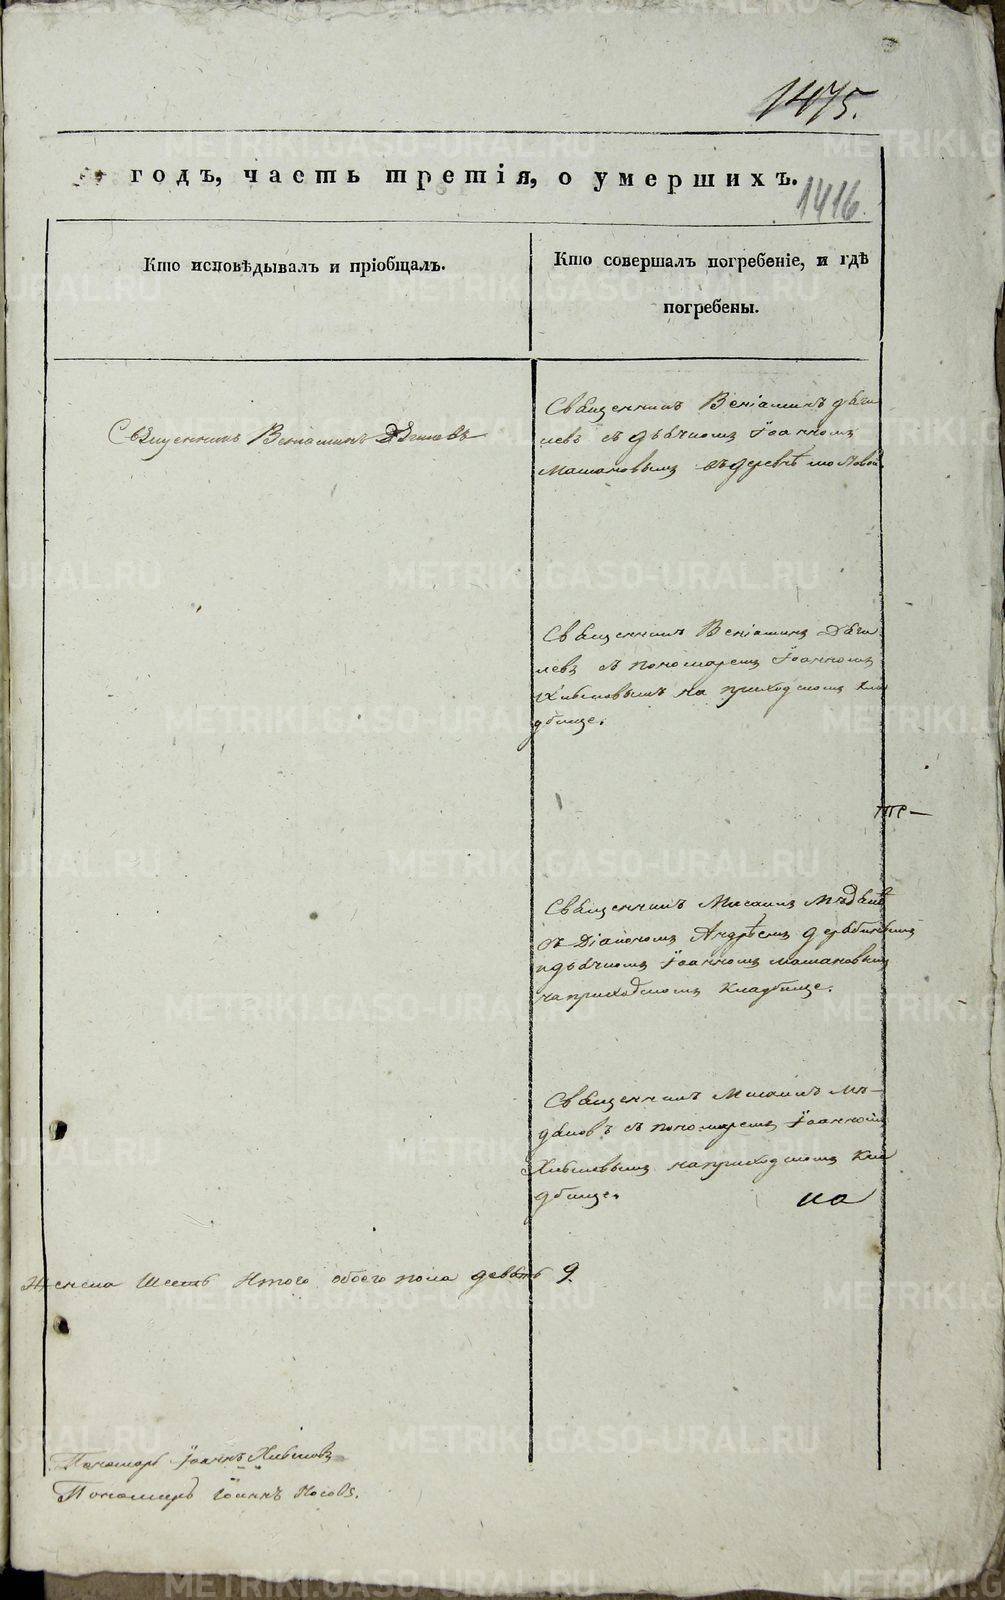 1475.
годъ, часть третія, о умершихъ.
1416
Кто исповѣдывалъ и пріобщалъ.
Кто совершалъ погребеніе, и гдѣ
погребены.
Священникъ Веніаминъ Дягилевъ
Священникъ Веніаминъ Дяги
левъ съ дьячкомъ Іоанномъ
Машановымъ въ деревнѣ
Священникъ Веніаминъ Дяги
левъ съ пономаремъ Іоанномъ
на приходскомъ кла
дбище.
Священникъ Мисаилъ
съ Діакономъ Андрѣемъ
и дьячкомъ Іоанномъ Машановымъ
на приходскомъ кладбище.
Священникъ Мисаилъ
съ пономаремъ Іоанномъ
на приходскомъ кла
дбище.
на
Женска шесть Итого обоего пола девять 9
Пономарь Іоаннъ
Пономарь Іоаннъ Носовъ.
METRIKI.GASO-URAL.RU